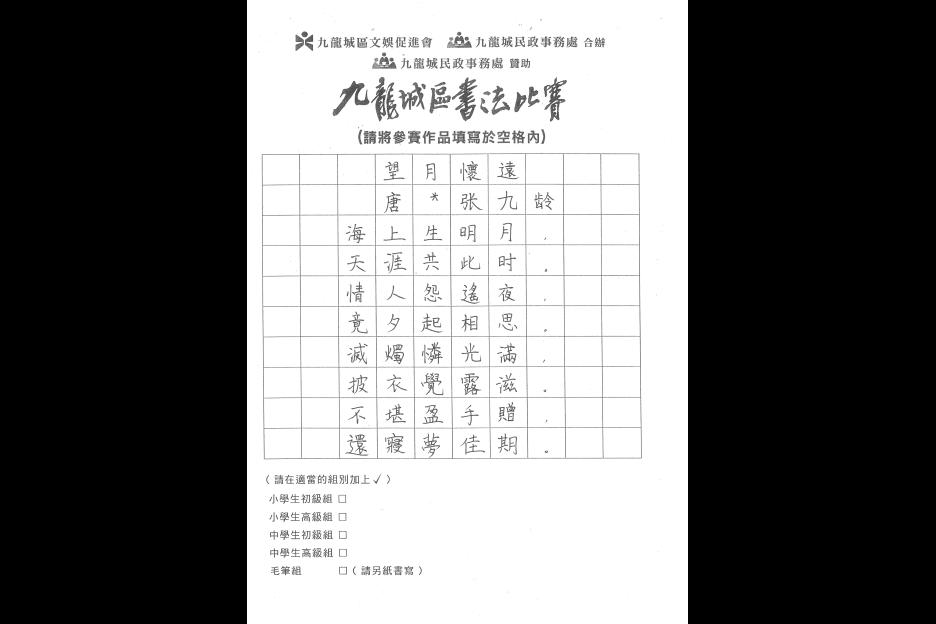 九龍城區文娛促進會 九龍城民政事務處 合辦
九龍城民政事務處 贊助
九龍城區書法比賽
(請將參賽作品填寫於空格內)
望月懷遠
唐*张九龄
海上生明月，
天涯共此时。
情人怨遙夜，
竟夕起相思。
滅燭憐光滿，
披衣覺露滋。
不堪盈手贈，
還寢夢佳期。
( 請在適當的組別加上 ✓ )
小學生初級組 □
小學生高級組 □
中學生初級組 □
中學生高級組 □
毛筆組 □ ( 請另紙書寫 )